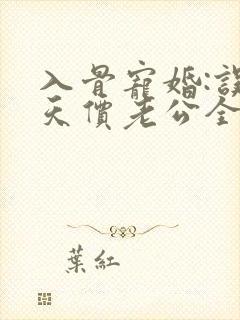 入骨寵婚:誤
天價老公全
葉紅